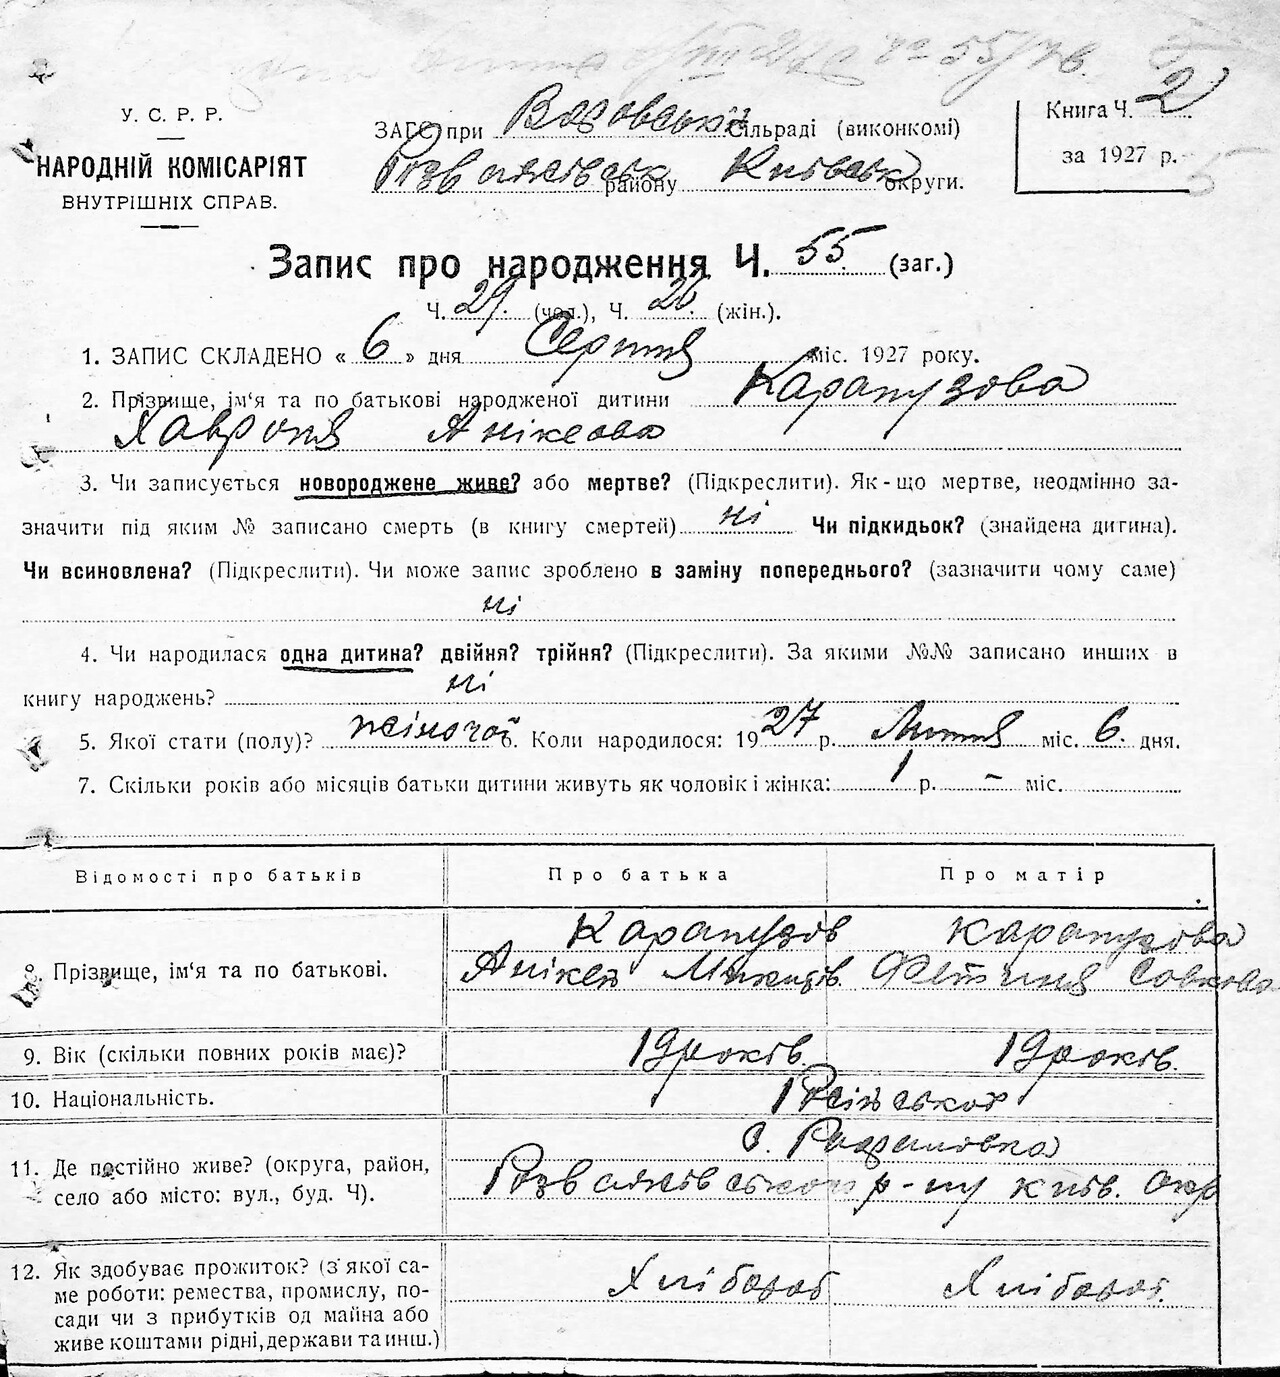 У. С. Р. Р.
НАРОДНІЙ КОМІСАРІЯТ
ВНУТРІШНІХ СПРАВ.
ЗАГС при Вазовській сільраді (виконкомі)
Розважівськ району Київськ округи.
Книга Ч. 2
за 1927 р.
5
Запис про народження Ч. 55 (заг.)
Ч. 29. (чол.), Ч. 26. (жін.).
1. ЗАПИС СКЛАДЕНО « 6 » дня Серпня міс. 1927 року.
2. Прізвище, ім‘я та по батькові народженої дитини Карапузова
Хавроня Анікеова
3. Чи записується новороджене живе? або мертве? (Підкреслити). Як-що мертве, неодмінно за-
значити під яким № записано смерть (в книгу смертей) ні Чи підкидьок? (знайдена дитина).
Чи всиновлена? (Підкреслити). Чи може запис зроблено в заміну попереднього? (зазначити чому саме)
ні
4. Чи народилася одна дитина? двійня? трійня? (Підкреслити). За якими №№ записано инших в
книгу народжень? ні
5. Якої стати (полу)? жіночої 6. Коли народилося: 1927 р. Липня міс. 6. дня.
7. Скільки років або місяців батьки дитини живуть як чоловік і жінка: 1 р. – міс.
Відомості про батьків Про батька Про матір
Прізвище, ім‘я та по батькові. Карапузів Карапузова
Анікей Микитів. Фетиня Совкова
9. Вік (скільки повних років має)? 19 років. 19 років.
10. Національність. Російської
11. Де постійно живе? (округа, район,
село або місто: вул., буд. Ч).
с. Рафаловка
Розважівського р-ну Київ. Окр
12. Як здобуває прожиток? (з якої са-
ме роботи: ремества, промислу, по-
сади чи з прибутків од майна або
живе коштами рідні, держави та инш.)
Хлібороб Хлібороб.